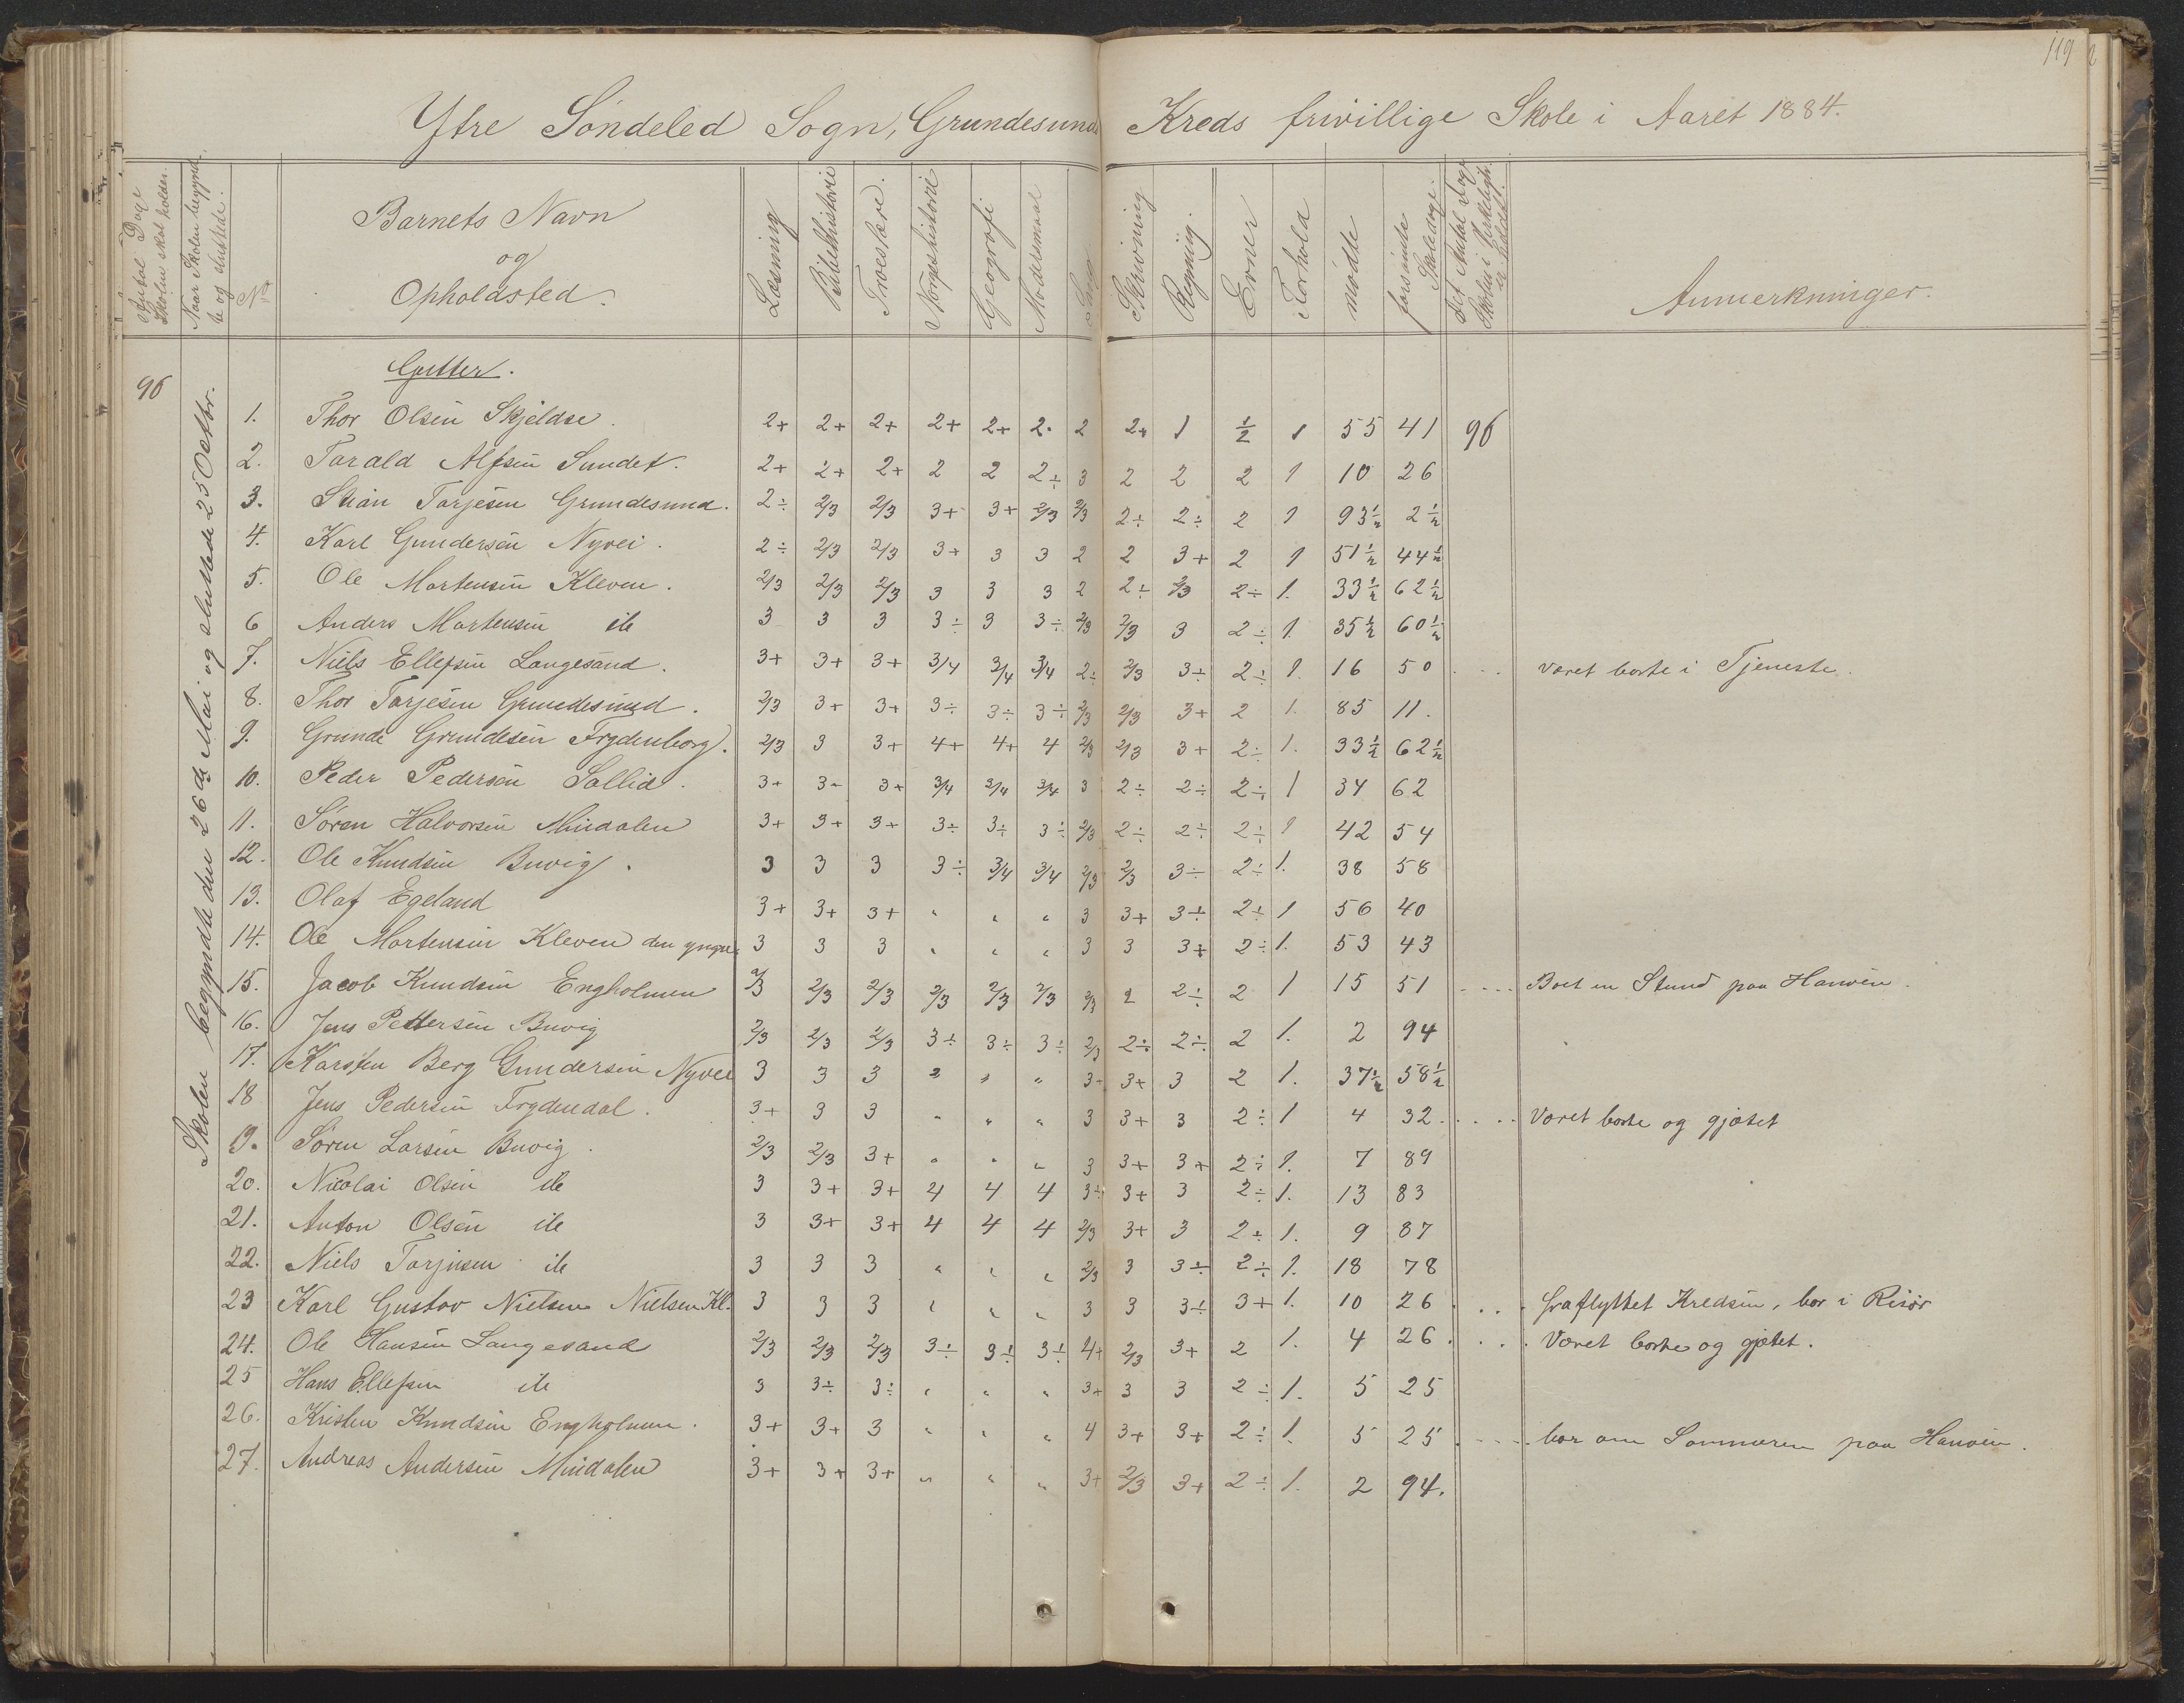 119
Ytre Söndeled Sogn, Grundesunds Kreds frivillige Skole i Aaret 1884.
Antal Dage Skolen skal holdes.
Naar Skolen begyndte og sluttede.
No
Barnets Navn
og
Opholdsted.
Læsning
Bibelhistorie
Troeslære.
Norgeshistorie
Geografi
Modersmaal
Sang
Skrivning
Regning.
Evner
Forhold
mödte
forsömte Skoledage.
Det Antal Dage Skolen i Virkeligh. er holdt.
Anmerkninger.
Skolen begyndte den 26de Mai og sluttede 25 Octbr.
Gutter.
96
1. Thor Olsen Skjeldsø. 2+ 2+ 2+ 2+ 2+ 2. 2 2+ 1 1/2 1 55 41 96
2. Tarald Alfsen Sundet. 2+ 2+ 2+ 2 2 2÷ 3 2 2 2 1 10 26
3. Stian Tarjesen Grundesund. 2÷ 2/3 2/3 3+ 3+ 2/3 2/3 2÷ 2÷ 2 1 93½ 2½
4. Karl Gundersen Nyvei. 2÷ 2/3 2/3 3+ 3 3 2 2 3+ 2 1 51½ 44½
5. Ole Mortensen Kleven. 2/3 2/3 2/3 3 3 3 2 2÷ 2/3 2÷ 1. 33½ 62½
6 Anders Mortensen do 3 3 3 3÷ 3 3÷ 2/3 2/3 3 2÷ 1. 35½ 60½
7. Niels Ellefsen Langesand. 3+ 3+ 3+ 3/4 3/4 3/4 2÷ 2/3 3÷ 2÷ 1. 16 50 ... været borte i Tjeneste.
8. Thor Tarjesen Grundesund. 2/3 3+ 3+ 3÷ 3÷ 3÷ 2/3 2/3 3+ 2 1. 85 11.
9. Grunde Grundesen Frydenborg. 2/3 3 3+ 4+ 4+ 4 2/3 2/3 3+ 2÷ 1. 33½ 62½
10. Peder Pedersen Sollid. 3+ 3- 3+ 3/4 3/4 3/4 3 2÷ 2÷ 2÷ 1 34 62
11. Sören Halvorsen Mindalen 3+ 3+ 3+ 3÷ 3÷ 3÷ 2/3 2÷ 2÷ 2÷ 1 42 54
12. Ole Knudsen Buvig. 3 3 3 3÷ 3/4 3/4 2/3 2/3 3÷ 2÷ 1. 38 58
13. Olaf Egeland 3+ 3+ 3+ " " " 3 3+ 3÷ 2÷ 1 56 40
14. Ole Mortensen Kleven den yngre 3 3 3 " " " 3 3 3+ 2÷ 1. 53 43
15. Jacob Knudsen Engholmen 2/3 2/3 2/3 2/3 2/3 2/3 2/3 2 2÷ 2 1 15 51 .... Boet en Stund paa Havöen.
16. Jens Pettersen Buvig 2/3 2/3 2/3 3÷ 3÷ 3÷ 2/3 2÷ 2÷ 2 1. 2 94
17. Karsten Berg Gundersen Nyvei 3 3 3 " " " 3+ 3+ 3 2 1. 37½ 58½
18 Jens Pedersen Frydendal. 3+ 3 3 " " " 3 3+ 3 2÷ 1 4 32.... Været borte og gjætet
19. Sören Larsen Buvig. 2/3 2/3 3+ " " " 3 3+ 3+ 2÷ 1. 7 89
20. Nicolai Olsen do 3 3+ 3+ 4 4 4 3÷ 3+ 3 2÷ 1. 13 83
21. Anton Olsen do 3 3+ 3+ 4 4 4 2/3 3+ 3 2÷ 1. 9 87
22. Niels Tarjusen do 3 3 3 " " " 2/3 3 3÷ 2÷ 1. 18 78
23 Karl Gustav Nielsen Nielsen Kl. 3 3 3 " " " 3 3 3÷ 3+ 1. 10 26 ... fraflyttet Kredsen, bor i Risör
24. Ole Hansen Langesand 2/3 2/3 2/3 3÷ 3÷ 3÷ 4+ 2/3 3+ 2 1. 4 26.... Været borte og gjætet.
25 Hans Ellefsen do 3 3÷ 3÷ " " " 3+ 3 3 2÷ 1. 5 25
26. Kristen Knudsen Engholmen. 3+ 3+ 3 " " " 4 3+ 3+ 2÷ 1. 5 25..... bor om Sommeren paa Havöen.
27. Andreas Andersen Mindalen 3+ 3+ 3+ " " " 3+ 2/3 3+ 2÷ 1. 2 94.